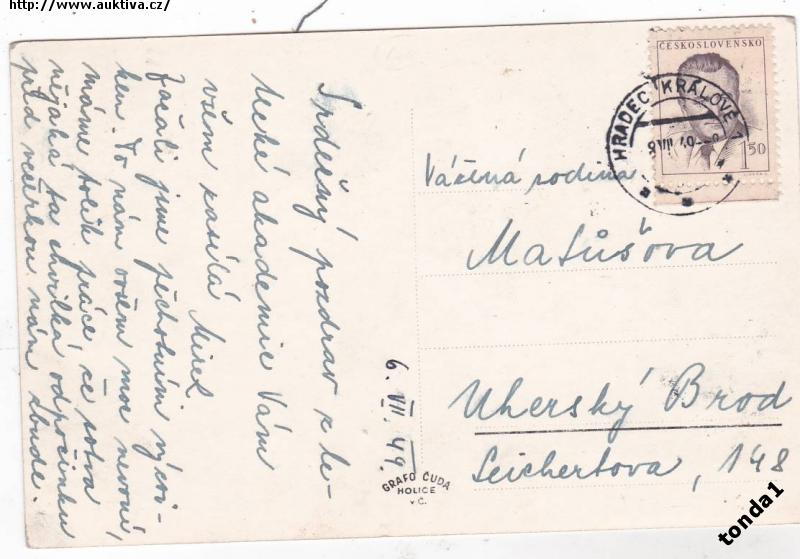 http://www.auktiva.cz/
Srdečný pozdrav z le-
tecké akademie Vám
všem zasílá Mirek
Začali jsme pěchotním výcvi-
kem. To nám ovšem moc nevoní,
máme tolik práce že sotva
nějaká ta chvilka odpočinku
před večerkou nám zbude.
6. VII. 49.
GRAFO ČUDA
HOLICE
v Č.
ČESKOSLOVENSKO
1 50
HRADEC KRÁLOVÉ 1
Vážená rodina
Matůšova
Uherský Brod
Seichertova, 148
tonda1